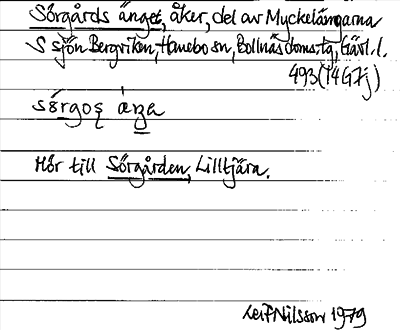 Sörgårds änget, åker, del av Myckelängarna
S sjön Bergviken, Hanebo sn, Bollnäs doms:tg, Gävl. l.
493(14G7j)
Hör till Sörgården, Lilltjära.
Leif Nilsson 1979